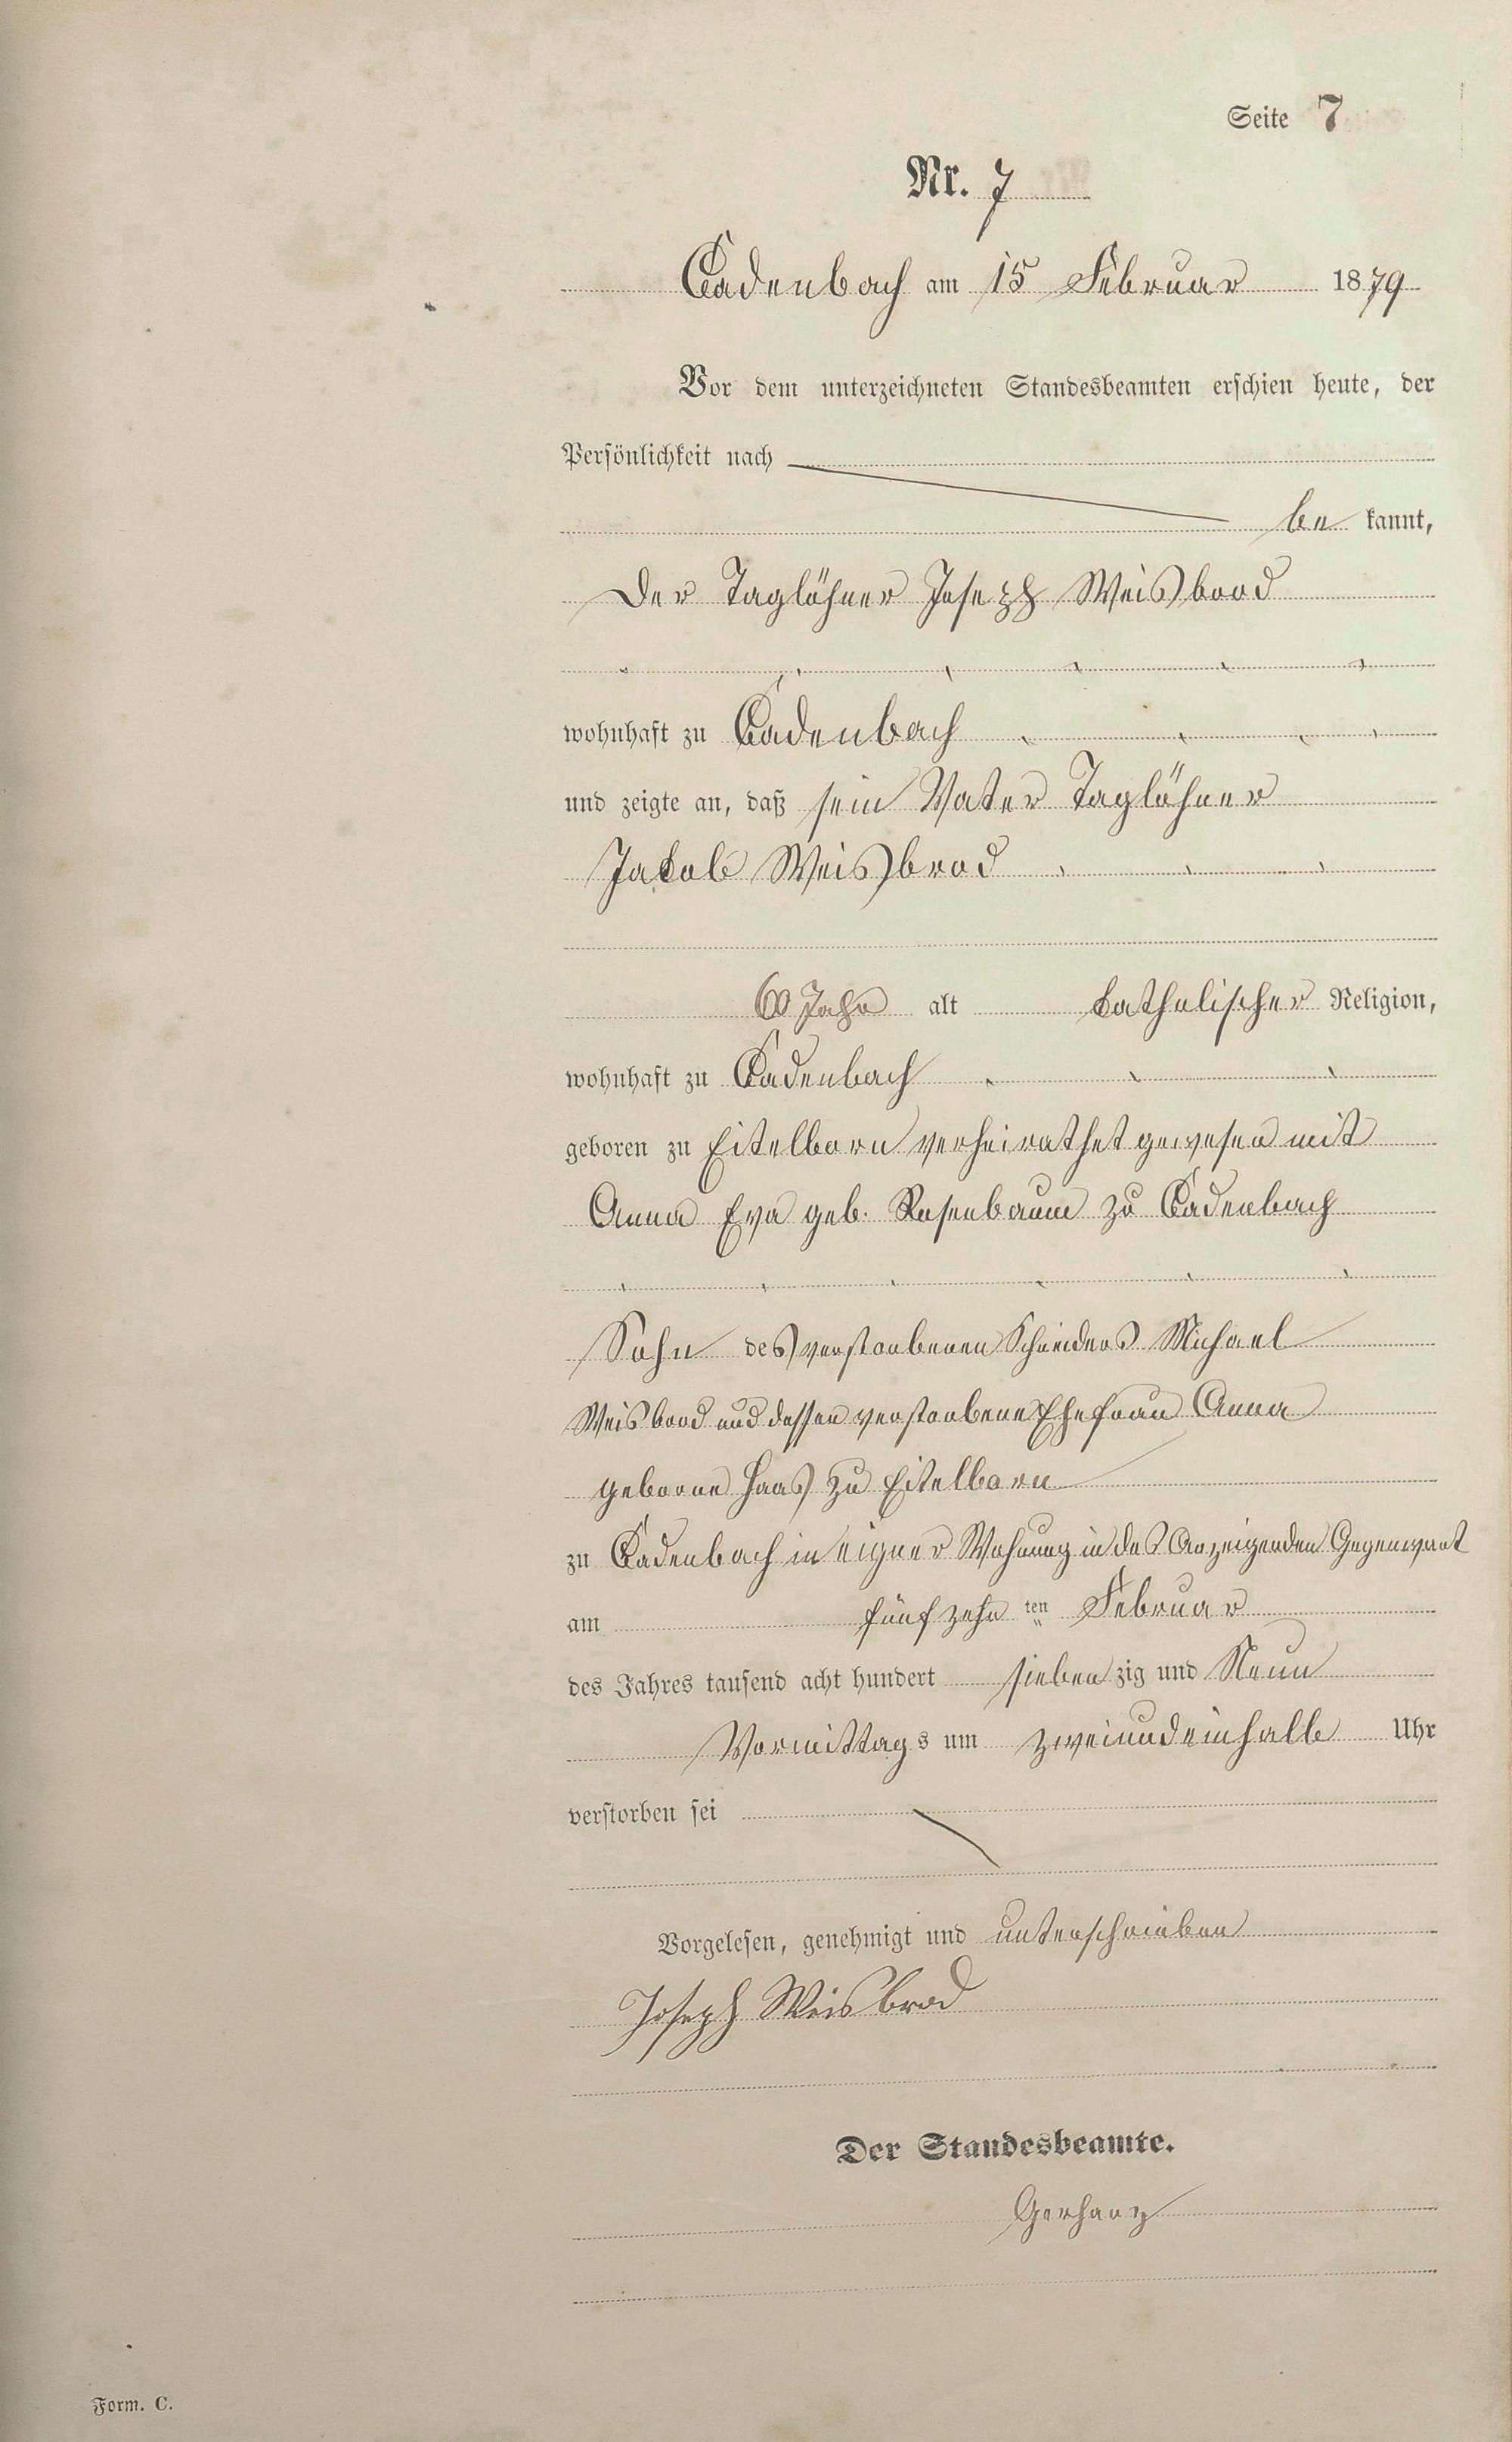 Seite 7
Nr. 7
Cadenbach am 15 Februar 1879
Vor dem unterzeichneten Standesbeamten erschien heute, der
Persönlichkeit nach
be kannt,
Der Taglöhner Joseph Weisbrod
wohnhaft zu Cadenbach
und zeigte an, daß sein Vater Taglöhner
Jakob Weisbrod
60 Jahr alt katholischer Religion,
wohnhaft zu Cadenbach
geboren zu Eitelborn verheirathet gewesen mit
Anna Eva geb. Rosenbaum zu Cadenbach
Sohn des verstorbenen Schneiders Michael
Weisbrod und dessen verstorbene Ehefrau Anna
geborne Haas zu Eitelborn
zu Cadenbach in eigner Wohnung in des Anzeigenden Gegenwart
am fünfzehn ten Februar
des Jahres tausend acht hundert sieben zig und Neun
Vormittag s um zweiundeinhalb Uhr
verstorben sei
Vorgelesen, genehmigt und unterschrieben
Joseph Weisbrod
Der Standesbeamte.
Gerharz
Form. C.